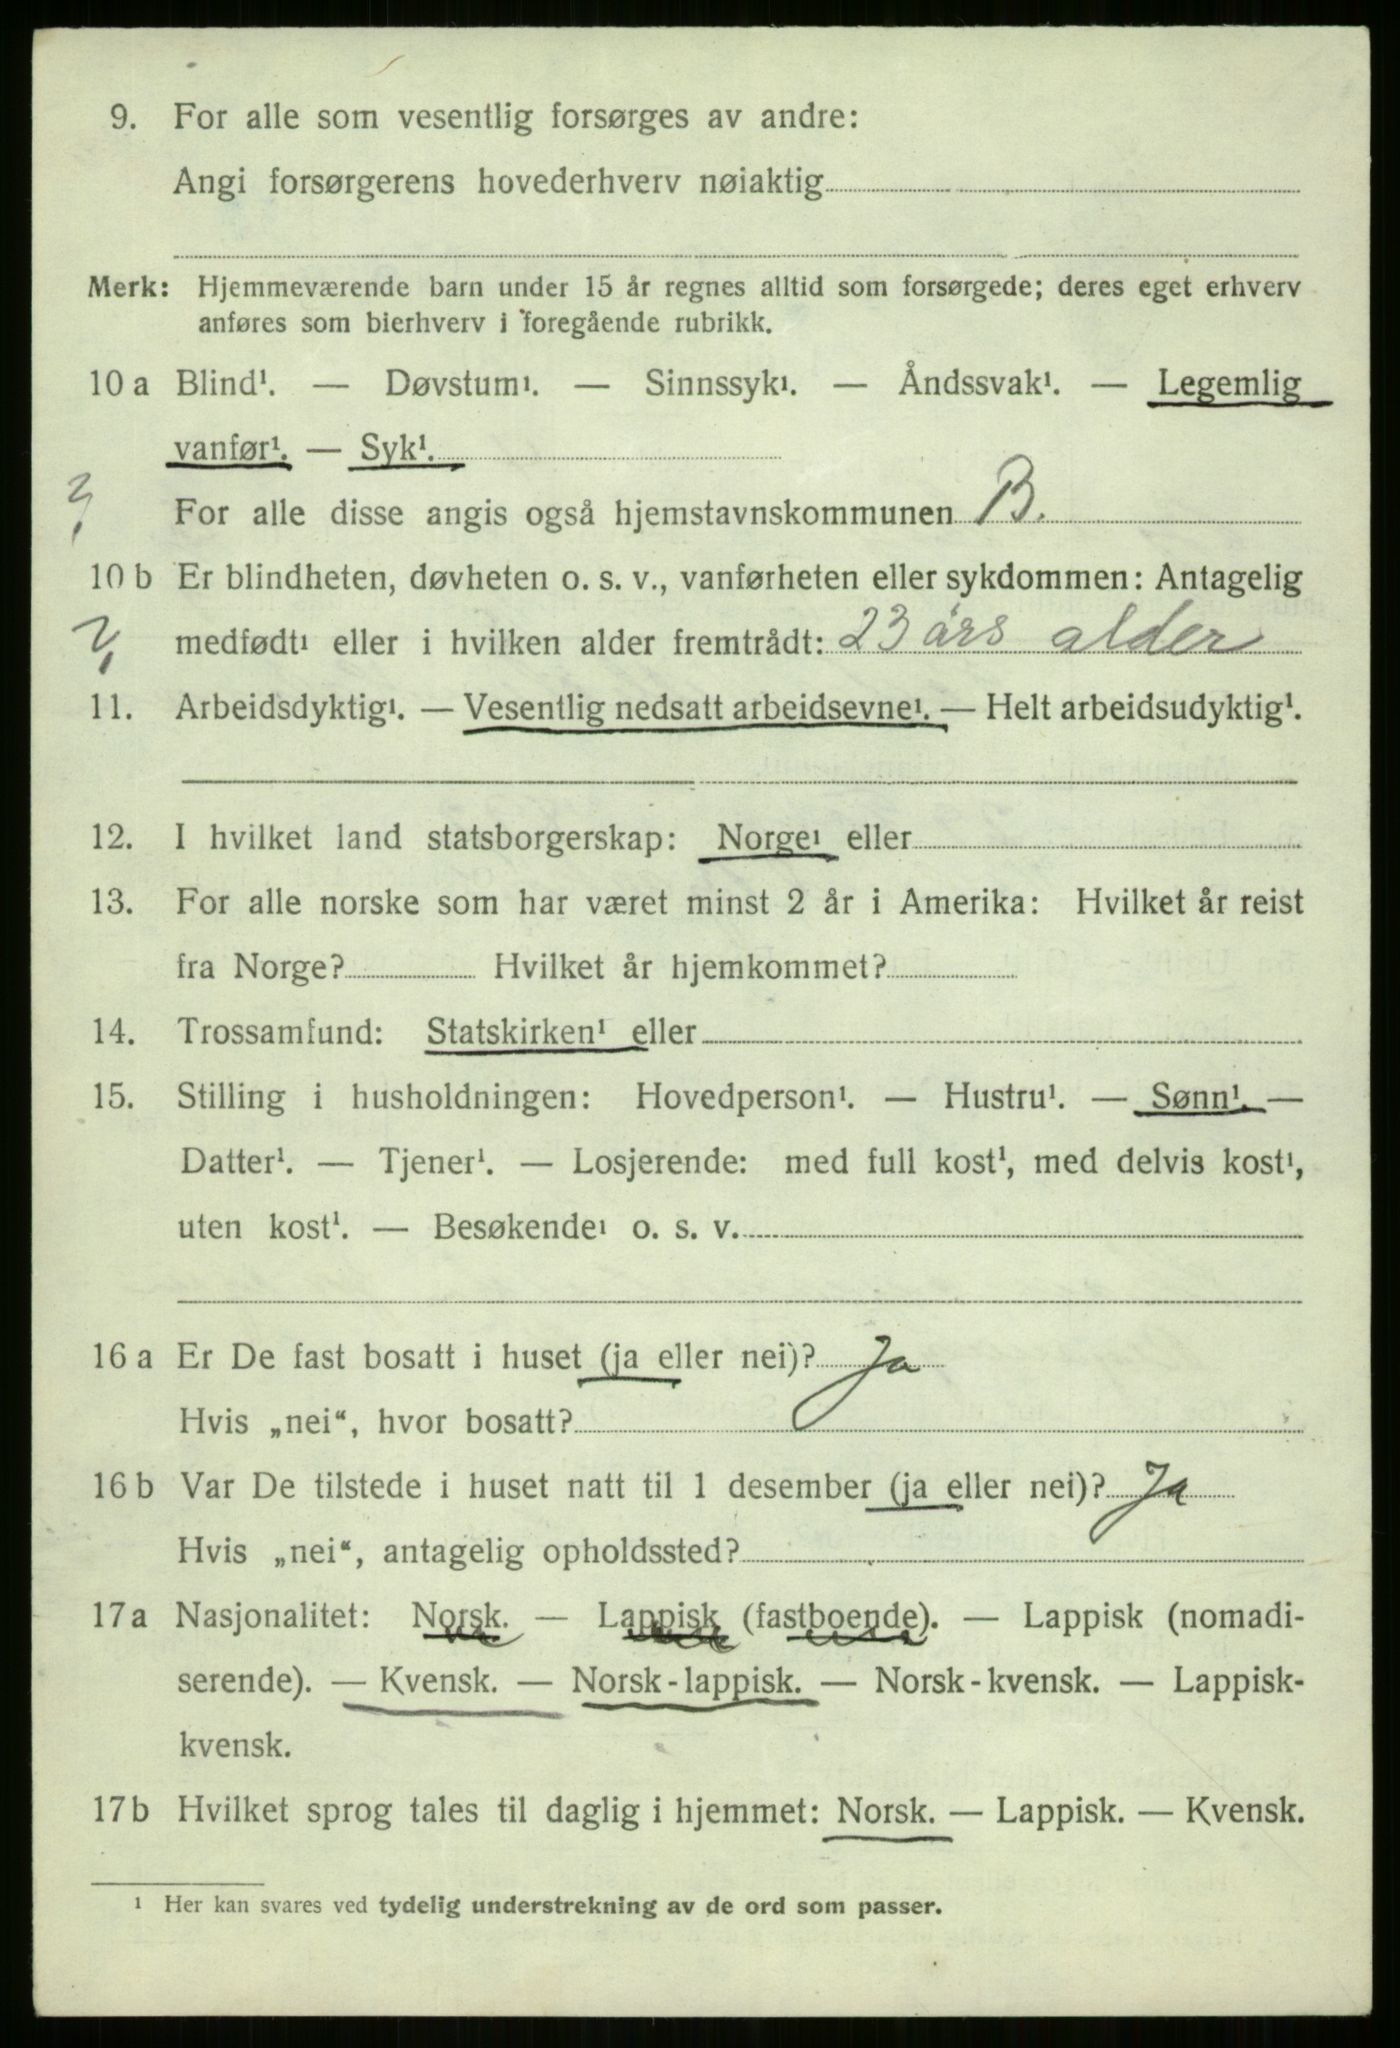 9. For alle som vesentlig forsørges av andre:
Angi forsørgerens hovederhverv nøiaktig
Merk: Hjemmeværende barn under 15 år regnes alltid som forsørgede; deres eget erhverv
anføres som bierhverv i foregående rubrikk.
10 a Blind¹. — Døvstum¹. — Sinnssyk¹. — Åndssvak¹. — Legemlig
vanfør¹. — Syk¹.
? For alle disse angis også hjemstavnskommunen B.
10 b Er blindheten, døvheten o. s. v., vanførheten eller sykdommen: Antagelig
? medfødt¹ eller i hvilken alder fremtrådt: 23 års alder
11. Arbeidsdyktig¹. — Vesentlig nedsatt arbeidsevne¹. — Helt arbeidsudyktig¹.
12. I hvilket land statsborgerskap: Norge¹ eller
13. For alle norske som har været minst 2 år i Amerika: Hvilket år reist
fra Norge? Hvilket år hjemkommet?
14. Trossamfund: Statskirken¹ eller
15. Stilling i husholdningen: Hovedperson¹. — Hustru¹. — Sønn¹. —
Datter¹. — Tjener¹. — Losjerende: med full kost¹, med delvis kost¹,
uten kost¹. — Besøkende¹ o. s. v.
16 a Er De fast bosatt i huset (ja eller nei)? Ja
Hvis „nei“, hvor bosatt?
16 b Var De tilstede i huset natt til 1 desember (ja eller nei)? Ja
Hvis „nei“, antagelig opholdssted?
17 a Nasjonalitet: Norsk. — Lappisk (fastboende). — Lappisk (nomadi-
serende). — Kvensk. — Norsk-lappisk. — Norsk-kvensk. — Lappisk-
kvensk.
17 b Hvilket sprog tales til daglig i hjemmet: Norsk. — Lappisk. — Kvensk.
¹ Her kan svares ved tydelig understrekning av de ord som passer.